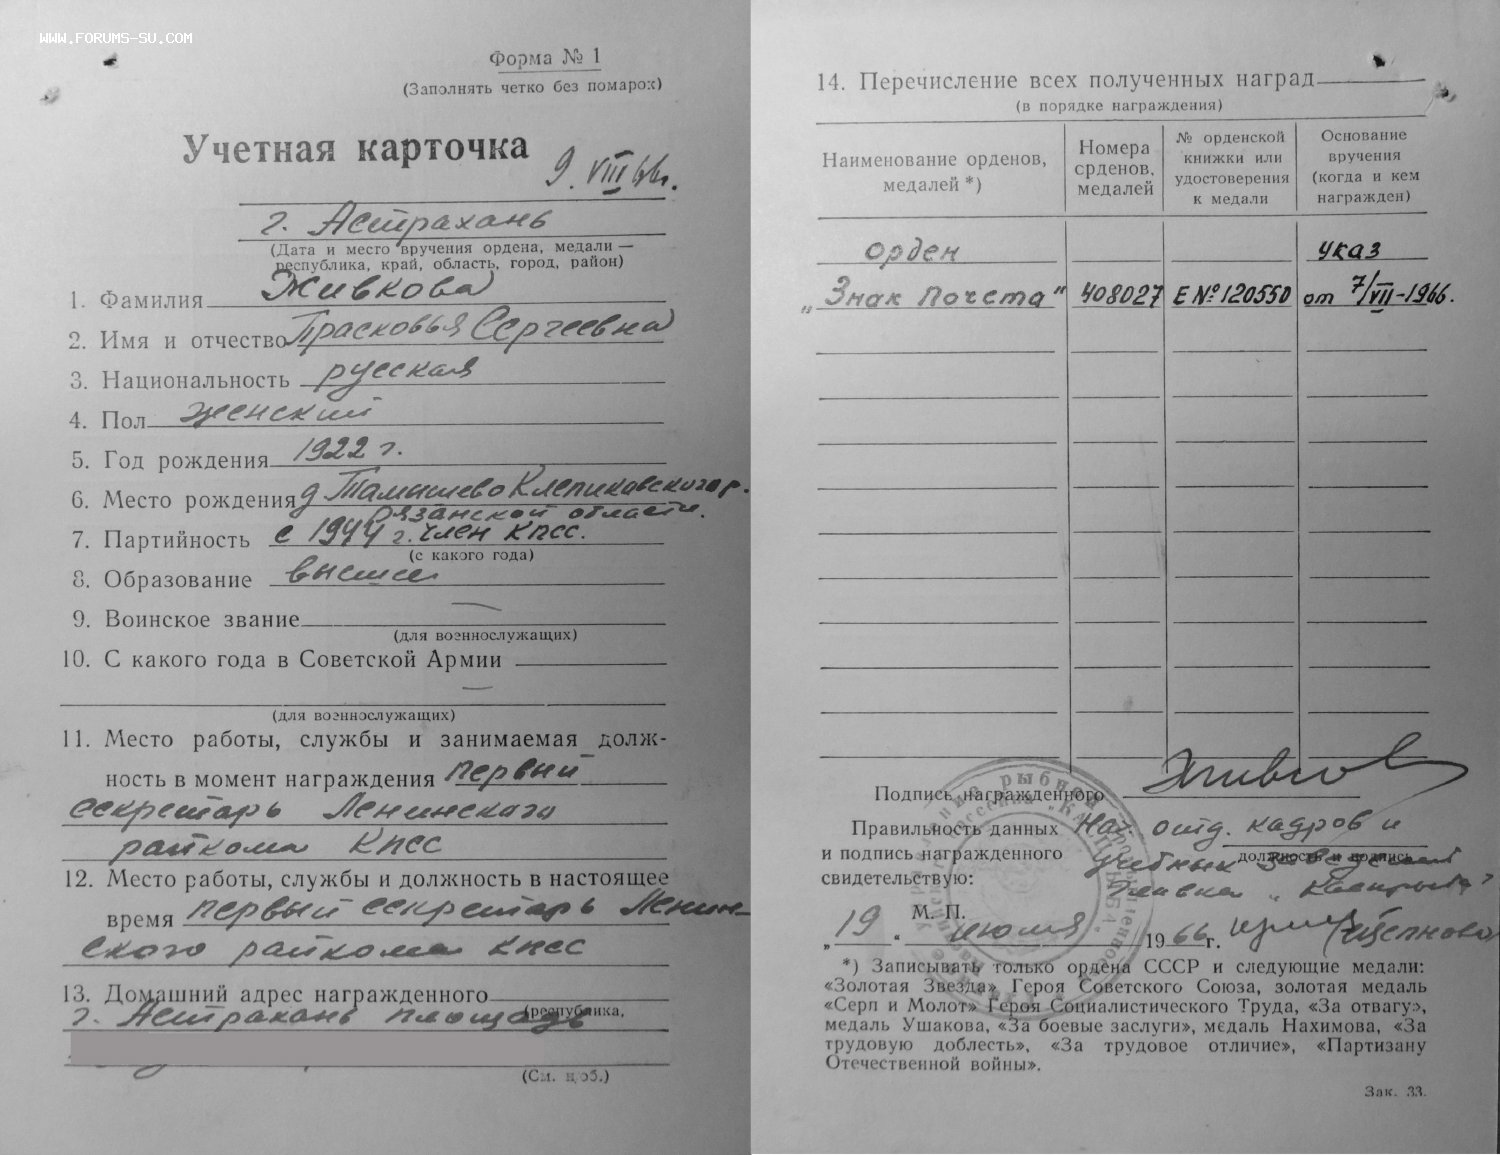 WWW.FORUMS-SU.COM
Форма № 1
(Заполнять четко без помарок)
Учетная карточка
9. VIII 66г.
г. Астрахань
(Дата и место вручения ордена, медали —
республика, край, область, город, район)
1. Фамилия Живкова
2. Имя и отчество Прасковья Сергеевна
3. Национальность русская
4. Пол женский
5. Год рождения 1922 г.
6. Место рождения д. Клепиковского р.
Рязанской области.
7. Партийность с 1944 г. член КПСС.
(с какого года)
8. Образование высшее
9. Воинское звание —
(для военнослужащих)
10. С какого года в Советской Армии
—
(для военнослужащих)
11. Место работы, службы и занимаемая долж-
ность в момент награждения первый
секретарь Ленинского
райкома КПСС
12. Место работы, службы и должность в настоящее
время первый секретарь Ленин-
ского райкома КПСС
13. Домашний адрес награжденного
(республика,
г. Астрахань площадь
(См. н об.)
14. Перечисление всех полученных наград
(в порядке награждения)
Наименование орденов, медалей *)
Номера орденов, медалей
№ орденской книжки или удостоверения к медали
Основание вручения (когда и кем награжден)
орден указ
„Знак Почета" 408027 Е № 120550 от 7/VII-1966.
Подпись награжденного Живкова
Правильность данных Нач. отд. кадров и
и подпись награжденного учебных заведений
должность и подпись
свидетельствую: главка „Каспрыба"
М. П.
„19" июля 1966 г.
*) Записывать только ордена СССР и следующие медали:
«Золотая Звезда» Героя Советского Союза, золотая медаль
«Серп и Молот» Героя Социалистического Труда, «За отвагу»,
медаль Ушакова, «За боевые заслуги», медаль Нахимова, «За
трудовую доблесть», «За трудовое отличие», «Партизану
Отечественной войны».
Зак. 33.